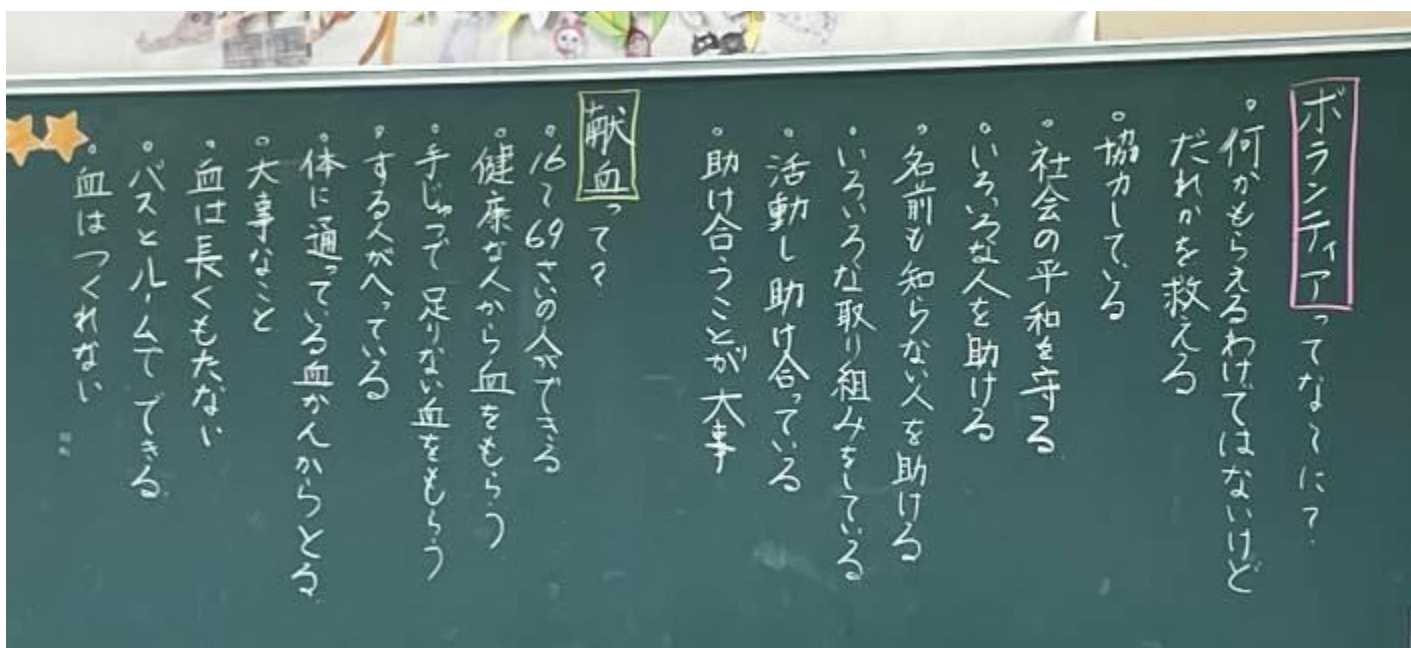 ボランティアってなぁに?
。何かもらえるわけではないけど
だれかを救える
。協力している
。社会の平和を守る
。いろいろな人を助ける
。名前も知らない人を助ける
。いろいろな取り組みをしている
。活動し助け合っている
。助け合うことが大事
献血って?
。16~69さいの人ができる
。健康な人から血をもらう
。手じゅつで足りない血をもらう
。する人がへっている
。体に通っている血かんからとる
。大事なこと
。血は長くもたない
。バスとルームでできる
。血はつくれない